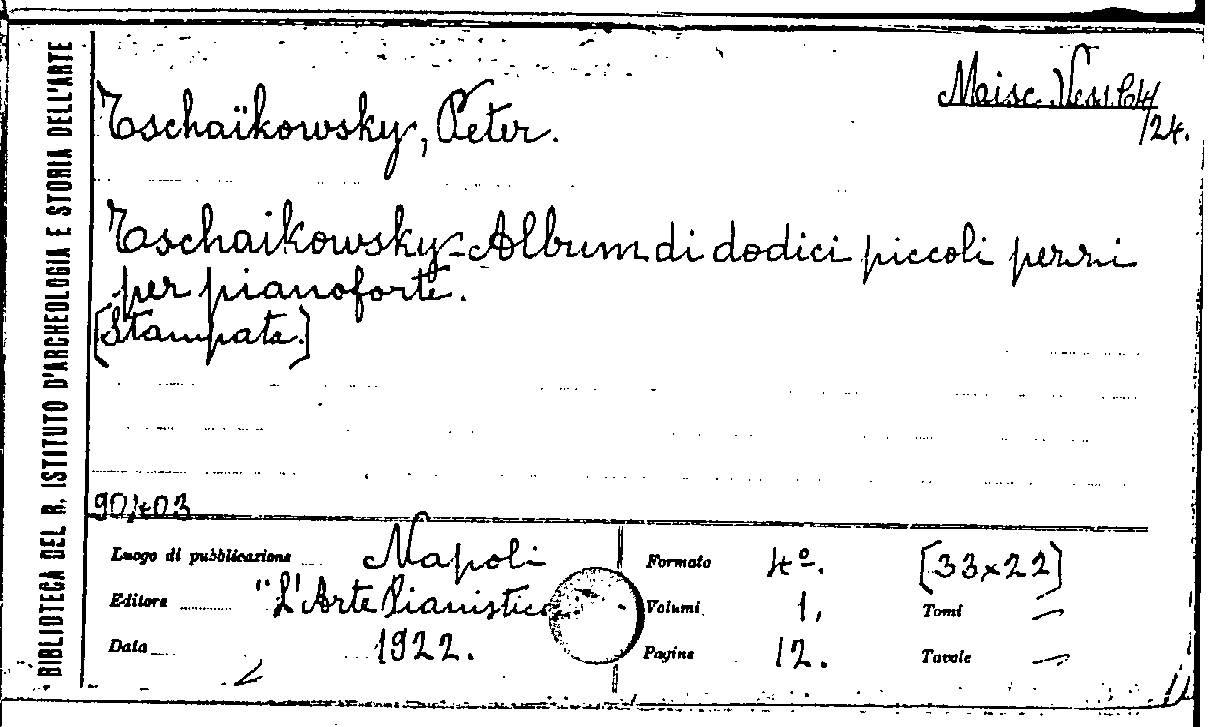 BIBLIOTECA DEL R. ISTITUTO D'ARCHEOLOGIA E STORIA DELL'ARTE
Tschaïkowsky, Peter.
Maisc. Vess.
/24.
Tschaikowsky-Album di dodici piccoli pezzi
per pianoforte.
[Stampata.]
90403
Luogo di pubblicazione Napoli Formato 4º. [33x22]
Editore "L'Arte Pianistica Volumi 1, Tomi —
Data 1922. Pagine 12. Tavole —